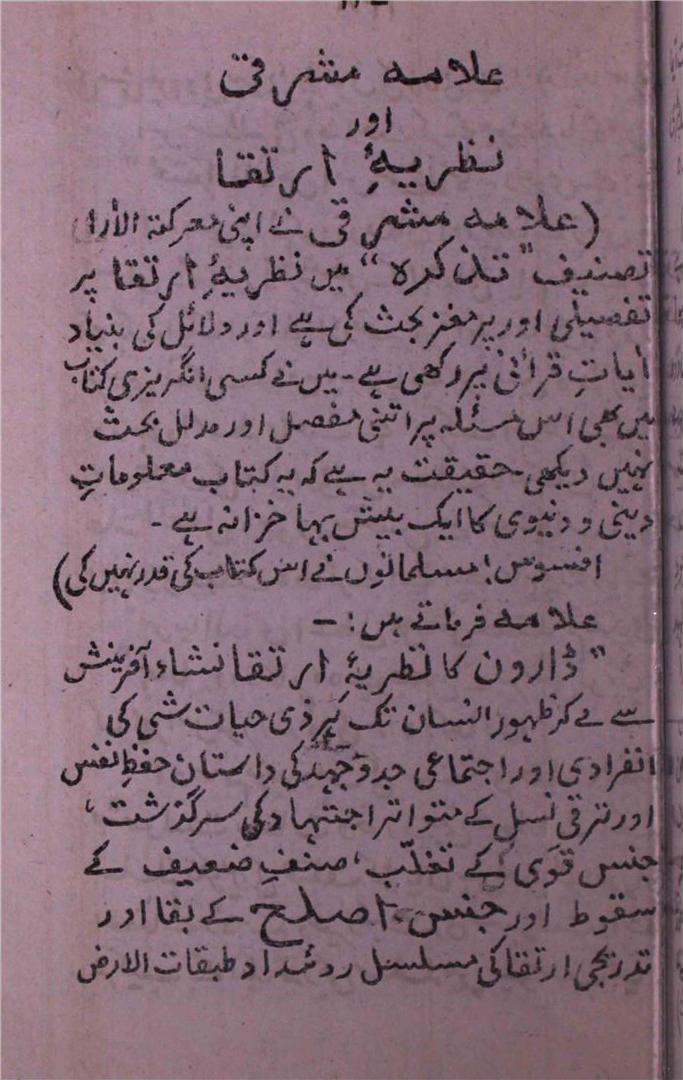 علامہ مشرقی
اور
نظریۂ ارتقا
(علامہ مشرقی نے اپنی معرکۃ الأرا
تصنیف "تذکرہ" میں نظریۂ ارتقا پر
تفصیلی اور پر مغز بحث کی ہے اور دلائل کی بنیاد
آیاتِ قرآنی پر رکھی ہے۔ میں نے کسی انگریزی کتاب
میں بھی اس مسئلہ پر اتنی مفصل اور مدلل بحث
نہیں دیکھی۔ حقیقت یہ ہے کہ یہ کتاب معلوماتِ
دینی و دنیوی کا ایک بیش بہا خزانہ ہے۔
افسوس! مسلمانوں نے اس کتاب کی قدر نہیں کی)
علامہ فرماتے ہیں:۔
"ڈارون کا نظریۂ ارتقا نشاءِ آفرینش
سے لے کر ظہور انسان تک ہر ذی حیات شی کی
انفرادی اور اجتماعی جدوجہد کی داستان حفظِ نفس
اور ترقیِ نسل کے متواتر اجتہاد کی سرگذشت،
جنس قوی کے تغلّب، صنفِ ضعیف کے
سقوط اور جنس اصلح کے بقا اور
تدریجی ارتقا کی مسلسل روئداد طبقات الارض